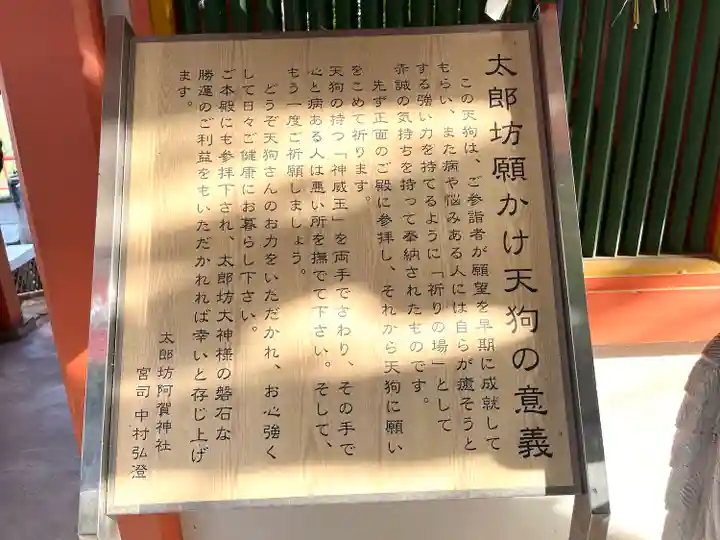 太郎坊願かけ天狗の意義
この天狗は、ご参詣者が願望を早期に成就して
もらい、また病や悩みある人には自らが癒そうと
する強い力を持てるように「祈りの場」として
赤誠の気持ちを持って奉納されたものです。
先ず正面のご殿に参拝し、それから天狗に願い
をこめて祈ります。
天狗の持つ「神威玉」を両手でさわり、その手で
心と病ある人は悪い所を撫でて下さい。そして、
もう一度ご祈願しましょう。
どうぞ天狗さんのお力をいただかれ、お心強く
して日々ご健康にお暮し下さい。
ご本殿にも参拝下され、太郎坊大神様の磐石な
勝運のご利益をもいただかれれば幸いと存じ上げ
ます。
太郎坊阿賀神社
宮司 中村弘澄